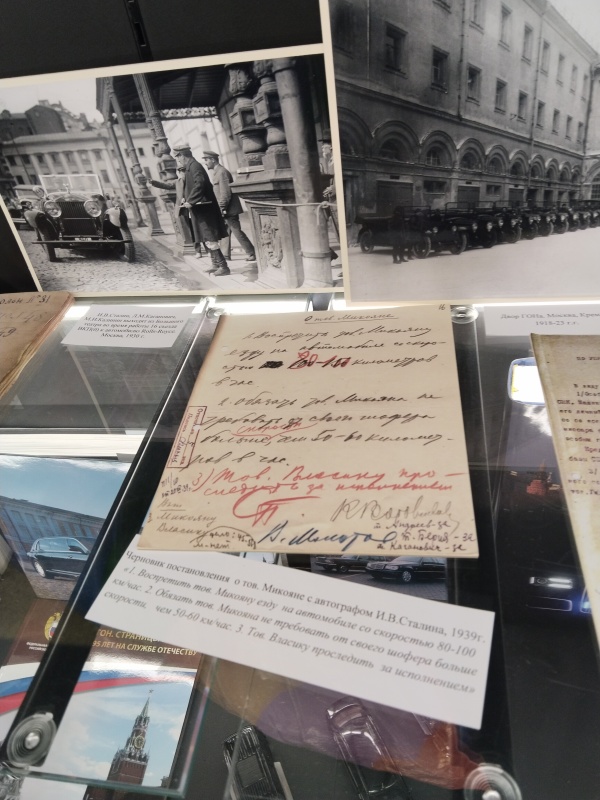 И.В.Сталин, Л.М.Каганович,
М.И.Калинин выходят из Большого
театра во время работы 16 съезда
ВКП(б) к автомобилю Rolls-Royce.
Москва, 1930 г.
Двор ГОНа, Москва, Кремль
1918-23 г.г.
О тов. Микояне
1. Воспретить тов. Микояну
езду на автомобиле со скоро-
стью 80-100 километров
в час.
2. Обязать тов. Микояна не
требовать от своего шофера
скорости
больше чем 50-60 километ-
ров в час.
3) Тов. Власику про-
следить за исполнением
К Ворошилов
В. Молотов
т. Андреев - за
т. Каганович - за
Микояну
Власику
Черновик постановления о тов. Микояне с автографом И.В.Сталина, 1939г.
«1. Воспретить тов. Микояну езду на автомобиле со скоростью 80-100
км/час. 2. Обязать тов. Микояна не требовать от своего шофера больше
скорости, чем 50-60 км/час. 3. Тов. Власику проследить за исполнением»
ГОН. СТРАНИЦ
95 ЛЕТ НА СЛУЖБЕ ОТЕЧЕСТВУ